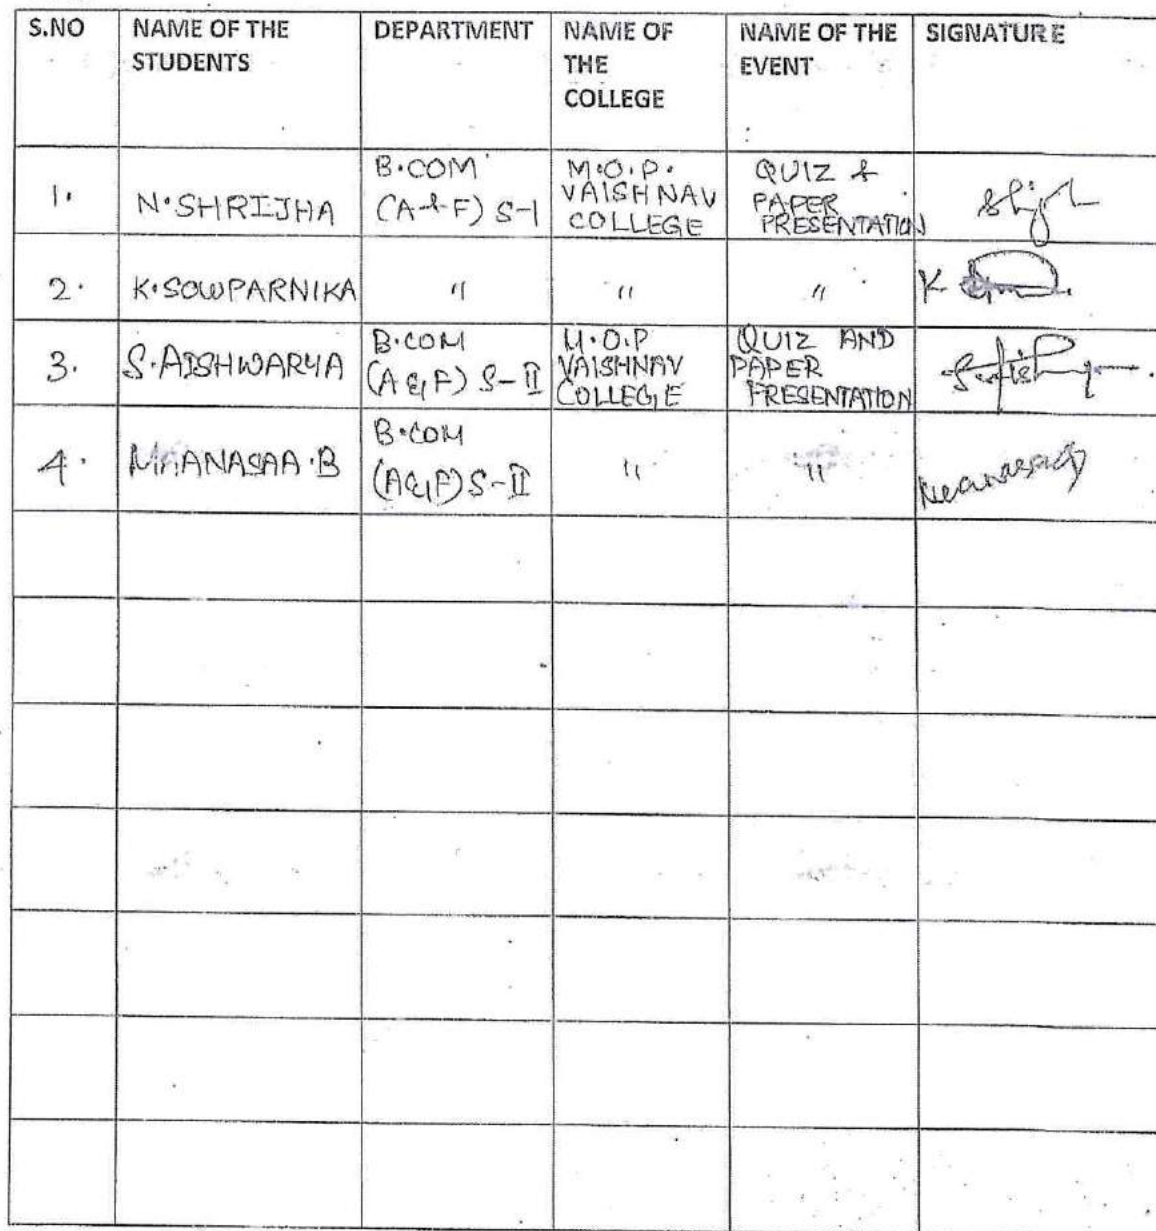 S.NO NAME OF THE STUDENTS DEPARTMENT NAME OF THE COLLEGE NAME OF THE EVENT SIGNATURE
1. N.SHRIJHA B.COM (A&F) S-I M.O.P. VAISHNAV COLLEGE QUIZ & PAPER PRESENTATION
2. K.SOWPARNIKA " " " K
3. S.AISHWARYA B.COM (A&F) S-II M.O.P VAISHNAV COLLEGE QUIZ AND PAPER PRESENTATION
4. MAANASAA.B B.COM (A&F) S-II " "